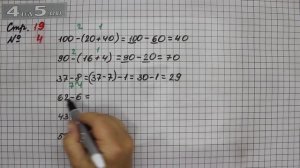 4 by 5
Стр. 19
№ 4
2 1
100-(20+40) = 100-60 = 40
2 1
90-(16+4) = 90-20 = 70
37-8 = (37-7)-1 = 30-1 = 29
7 1
62-6 =
43
5